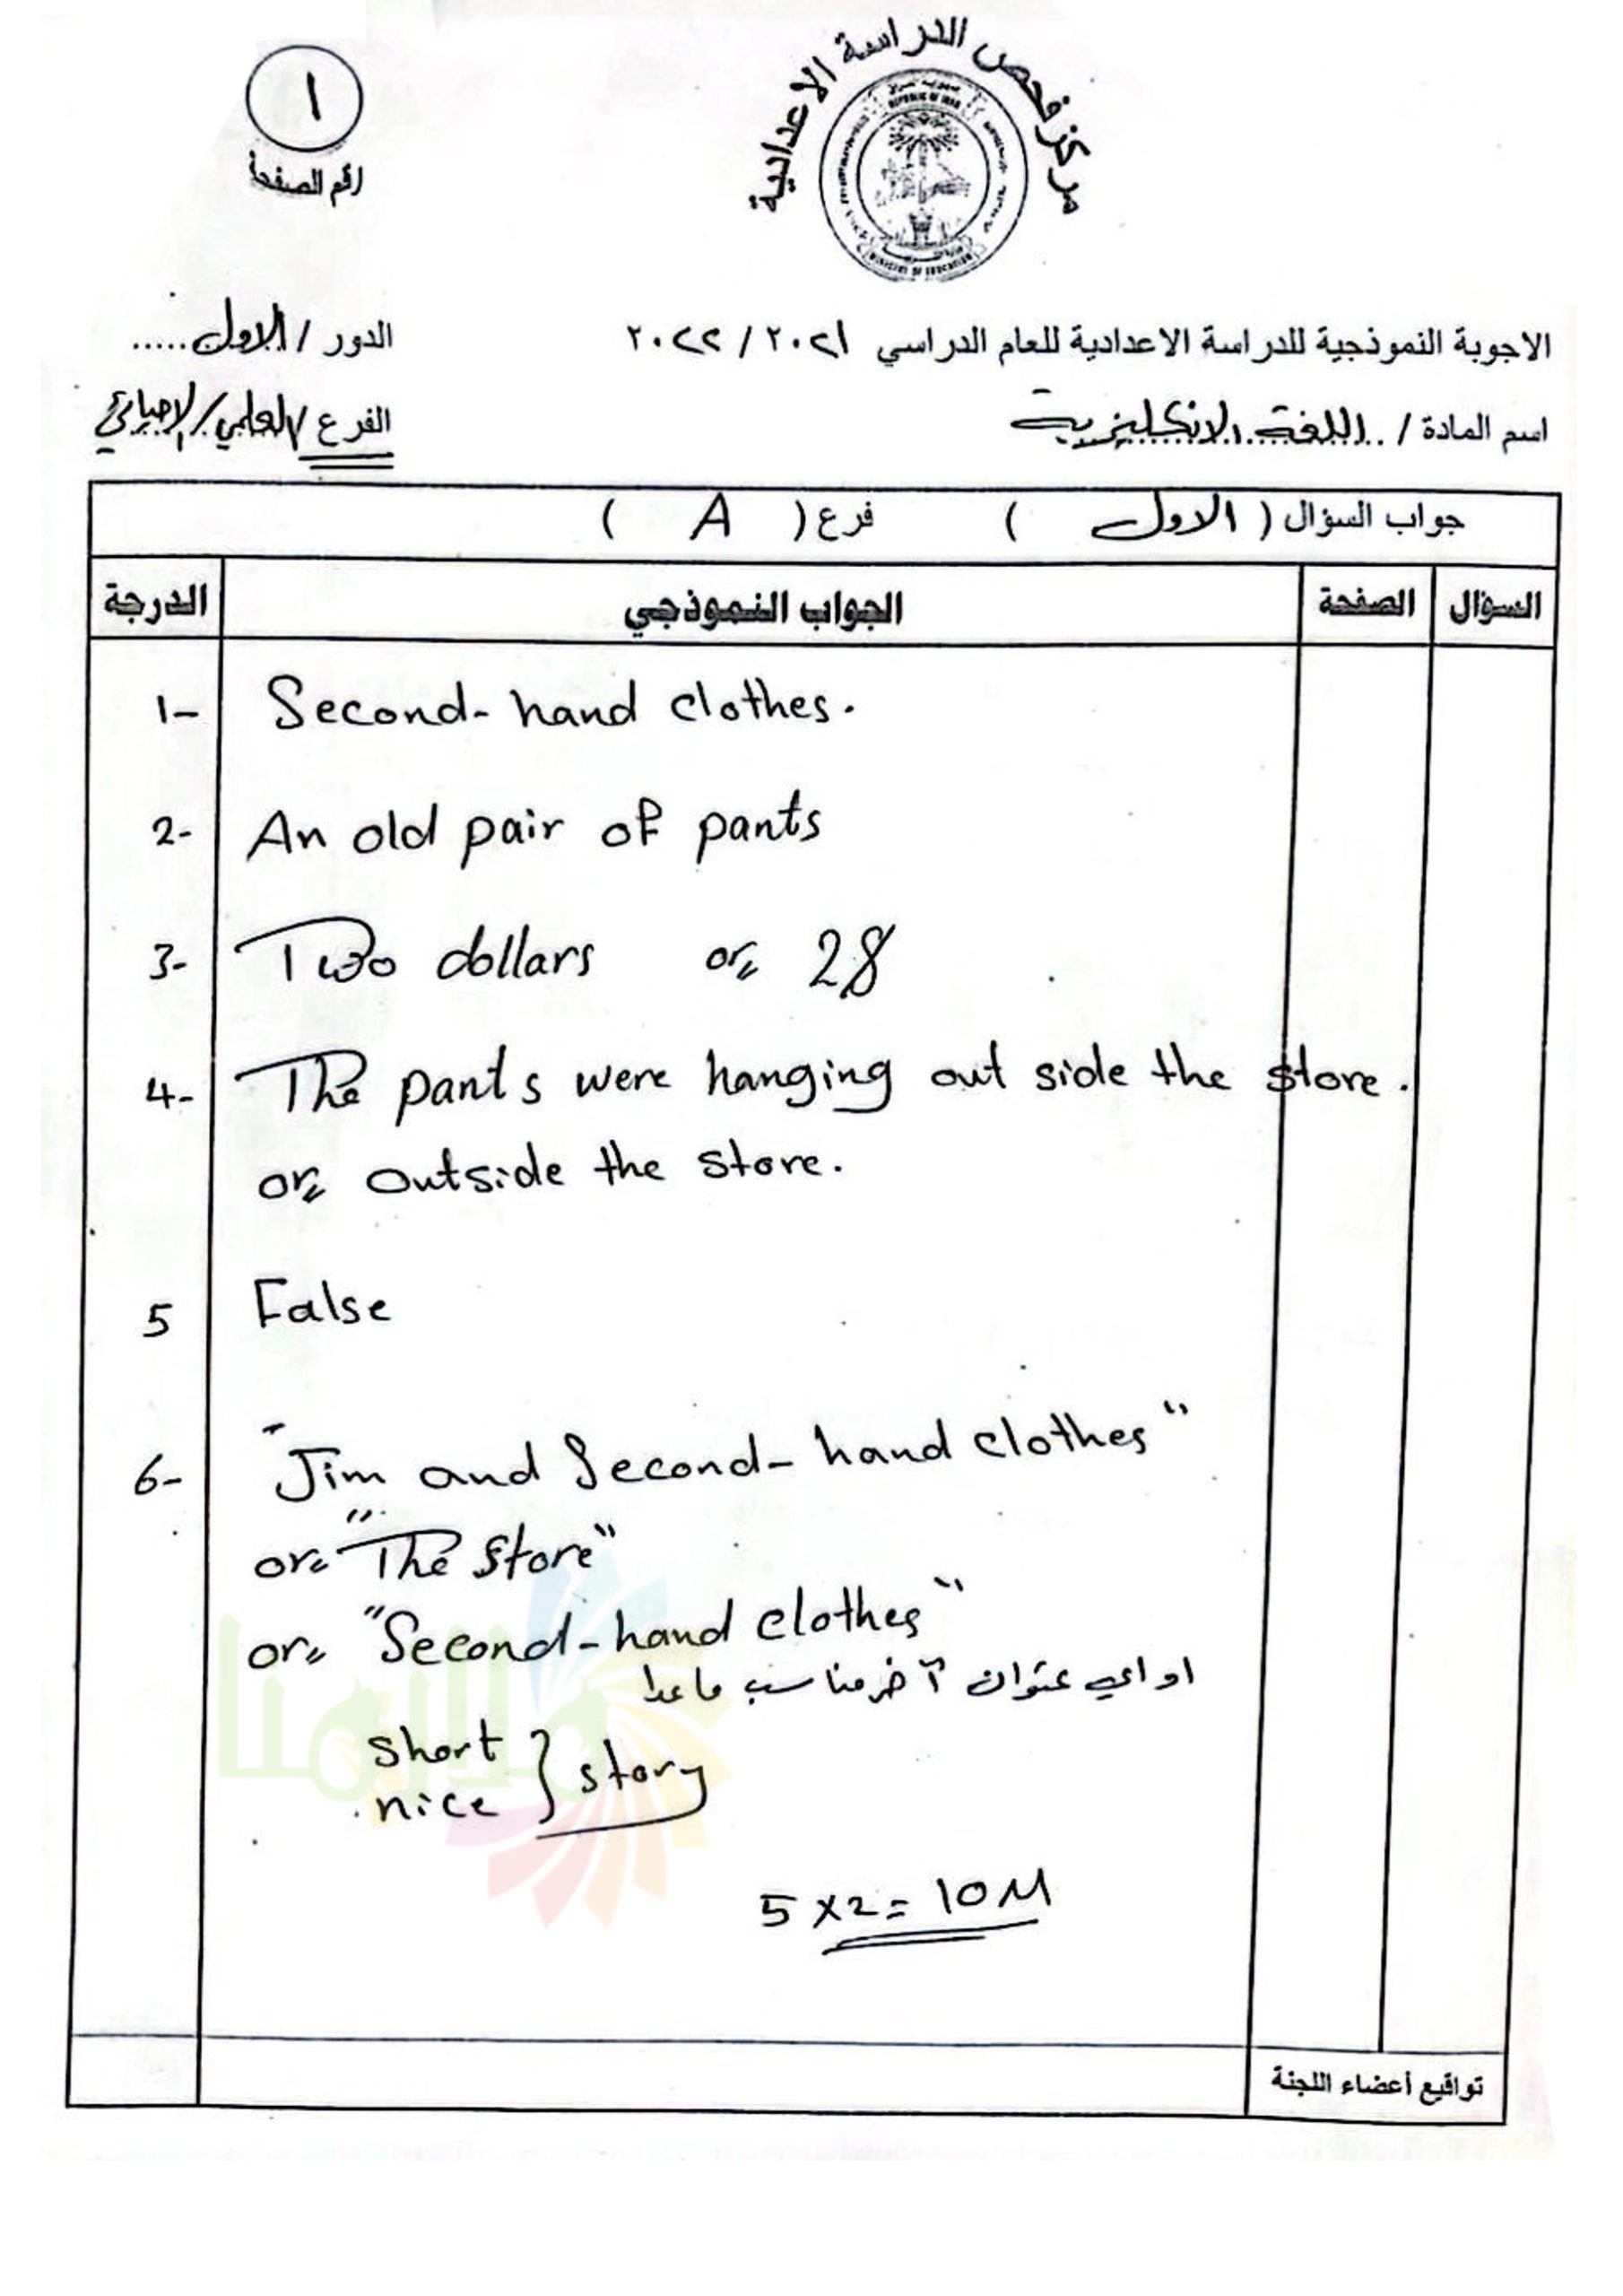 مركز فحص الدراسة الاعدادية
REPUBLIC OF IRAQ
MINISTRY OF EDUCATION
١
رقم الصفحة
الاجوبة النموذجية للدراسة الاعدادية للعام الدراسي ٢٠٢١ / ٢٠٢٢
الدور / الاول.....
اسم المادة / ..اللغة الانكليزية
الفرع / العلمي / الاحيائي
جواب السؤال ( الاول ) فرع ( A )
السؤال الصفحة الجواب النموذجي الدرجة
1- Second-hand clothes.
2- An old pair of pants
3- Two dollars or 2$
4- The pants were hanging out side the store.
or outside the store.
5 False
6- "Jim and Second-hand clothes"
or "The store"
or "Second-hand clothes"
او اي عنوان آخر مناسب ما عدا
short
nice } story
5 x 2 = 10 M
تواقيع أعضاء اللجنة
ملازمنا